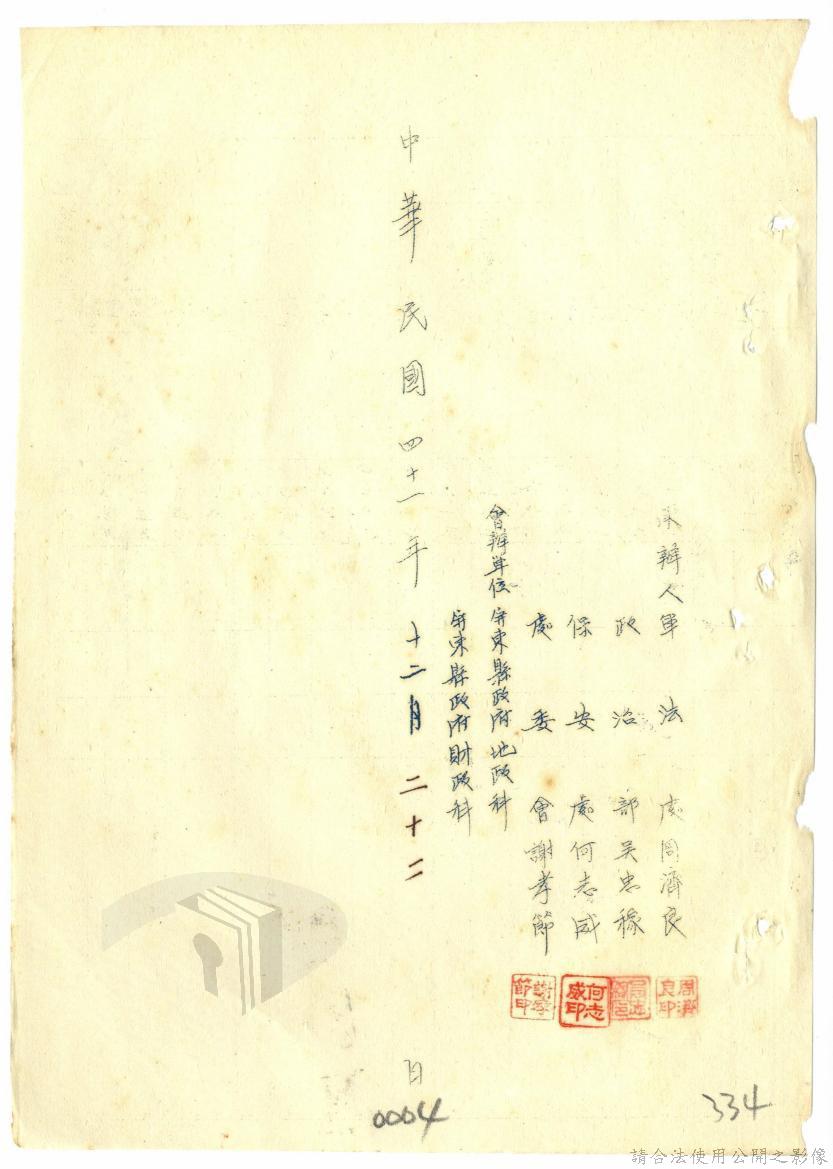 承辦人軍法處周濟良
政治部吴忠稼
保安處何志威
處委會謝孝節
會辦單位屏東縣政府地政科
屏東縣政府財政科
中華民國四十一年十二月二十二日
周濟良印
何志威印
謝孝節印
0004
334
請合法使用公開之影像